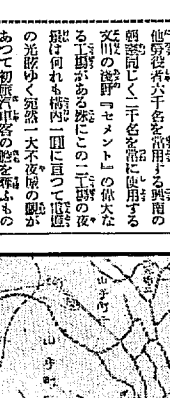 他勞役者六千名を常用する興南の
朝窒同じく二千名を常に使用する
文川の淺野『セメント』の偉大な
る工場がある然にこの二工場の夜
景は何れも構内一圓に亘つて電燈
の光眩ゆく宛然一大不夜城の觀が
あつて初旅汽車客の膽を奪ふもの
山手町
山手町